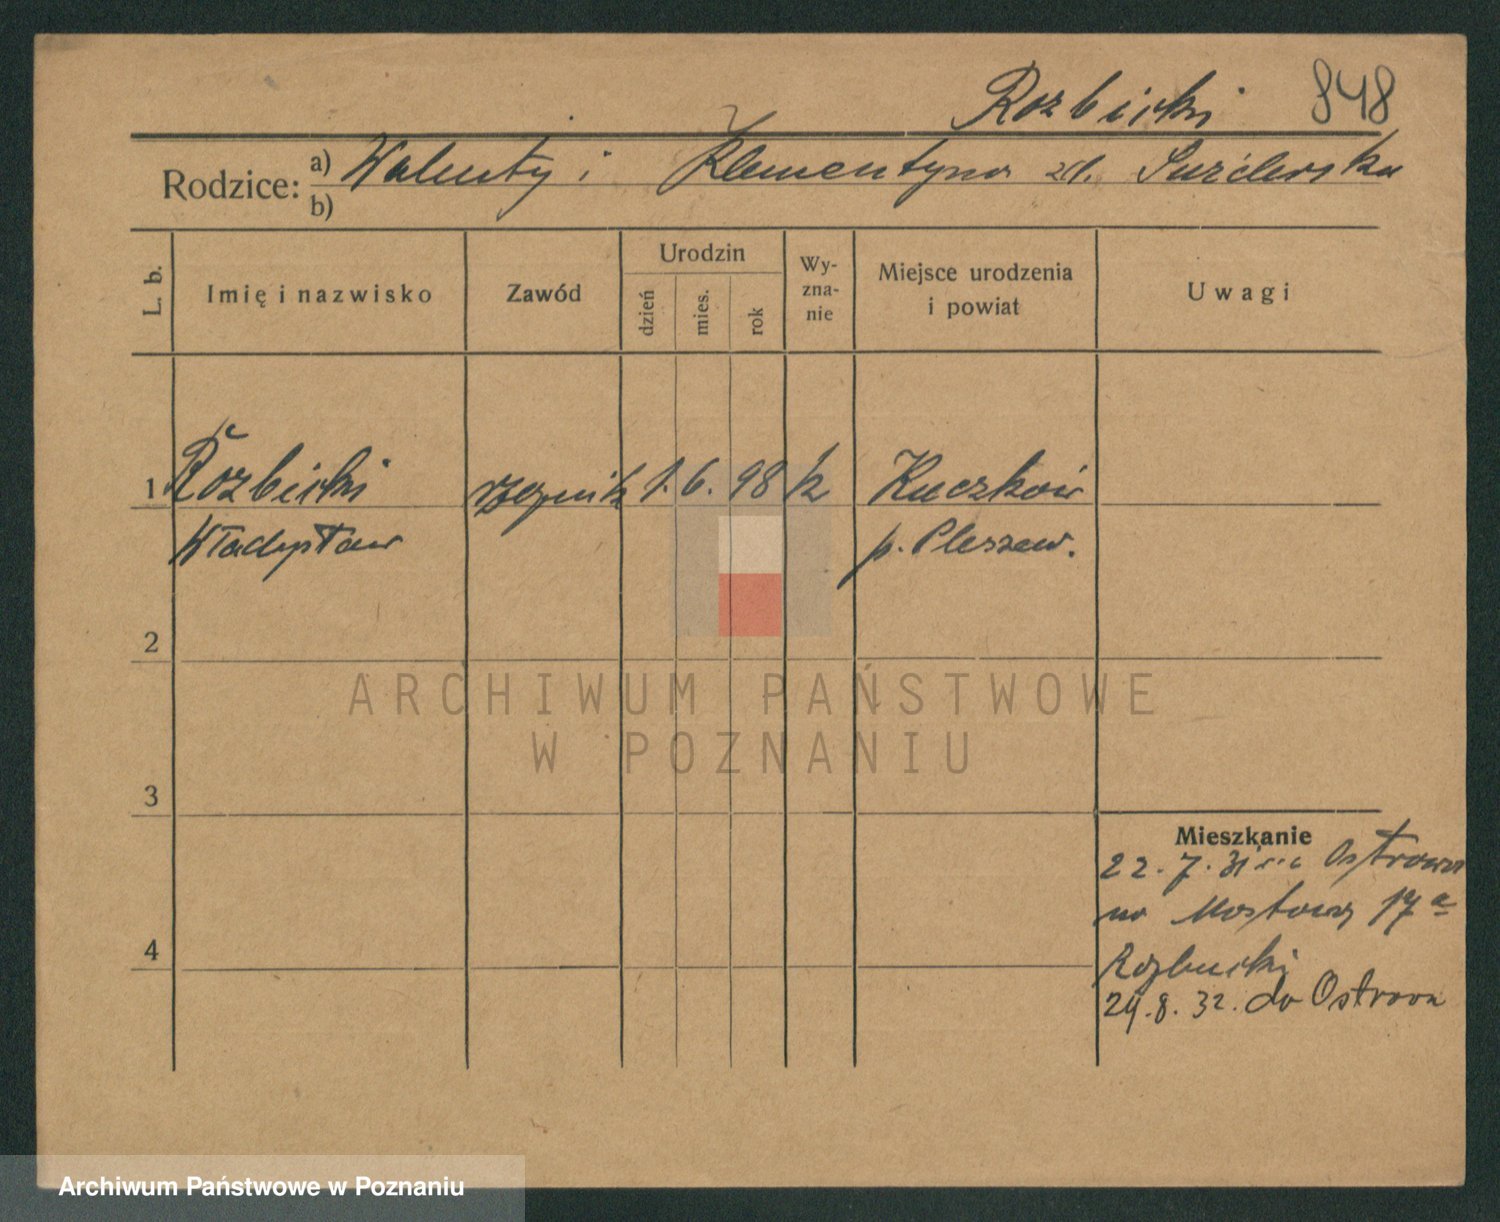 Rozbicki 848
Rodzice: a) Walenty i Klementyna zd.
b)
L. b. Imię i nazwisko Zawód Urodzin dzień mies. rok Wy-zna-nie Miejsce urodzenia i powiat Uwagi
1 Rozbicki rzeźnik 1. 6. 98 k Kuczków
Władysław p. Pleszew.
2
ARCHIWUM PAŃSTWOWE
W POZNANIU
3
Mieszkanie
22. 7. 31 Ostrowa
na Mostową 17a
4
Rozbicki
24. 8. 32. do Ostrowa
Archiwum Państwowe w Poznaniu